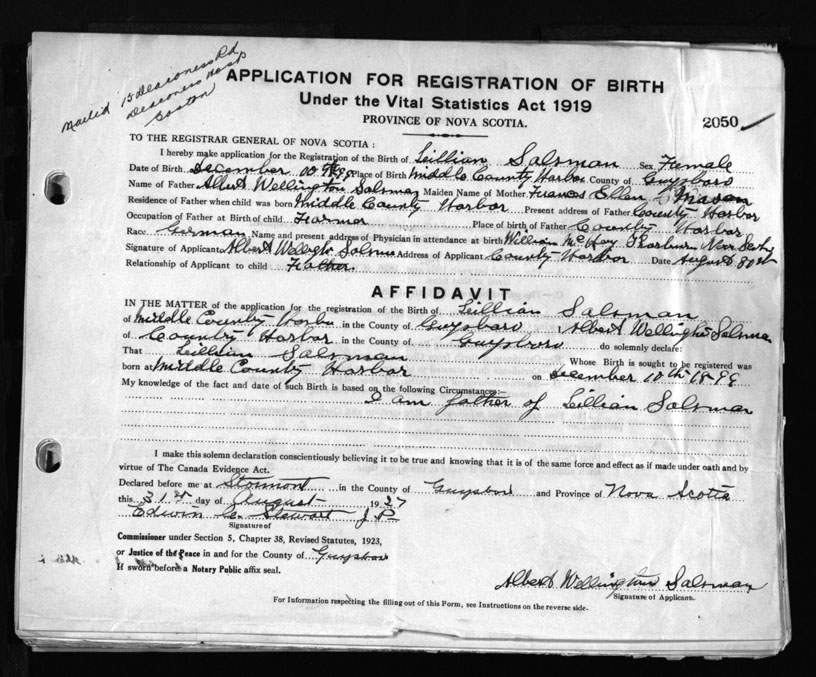 Mailed 15 Deaconess Rd
Deaconess Hosp
Boston
APPLICATION FOR REGISTRATION OF BIRTH
Under the Vital Statistics Act 1919
PROVINCE OF NOVA SCOTIA.
2050
TO THE REGISTRAR GENERAL OF NOVA SCOTIA:
I hereby make application for the Registration of the Birth of Lillian Salsman Sex Female
Date of Birth December 10th Place of Birth Middle County Harbor County of Guysboro
Name of Father Albert Wellington Salsman Maiden Name of Mother Frances Ellen Mason
Residence of Father when child was born Middle County Harbor Present address of Father County Harbor
Occupation of Father at Birth of child Farmer Place of birth of Father County Harbor
Race German Name and present address of Physician in attendance at birth William McKay Thorburn Nova Scotia
Signature of Applicant Albert Wellington Salsman Address of Applicant County Harbor Date August 31st
Relationship of Applicant to child Father.
AFFIDAVIT
IN THE MATTER of the application for the registration of the Birth of Lillian Salsman
of Middle County Harbor in the County of Guysboro I Albert Wellington Salsman
of Country Harbor in the County of Guysboro do solemnly declare:
That Lillian Salsman Whose Birth is sought to be registered was
born at Middle County Harbor on December 10th 1899
My knowledge of the fact and date of such Birth is based on the following Circumstances:—
I am father of Lillian Salsman
I make this solemn declaration conscientiously believing it to be true and knowing that it is of the same force and effect as if made under oath and by
virtue of The Canada Evidence Act.
Declared before me at Stormont in the County of Guysboro and Province of Nova Scotia
this 31st day of August 1927
Edwin C. Stewart J.P.
Signature of
Commissioner under Section 5, Chapter 38, Revised Statutes, 1923,
or Justice of the Peace in and for the County of Guysboro
If sworn before a Notary Public affix seal.
Albert Wellington Salsman
Signature of Applicant.
For Information respecting the filling out of this Form, see Instructions on the reverse side.